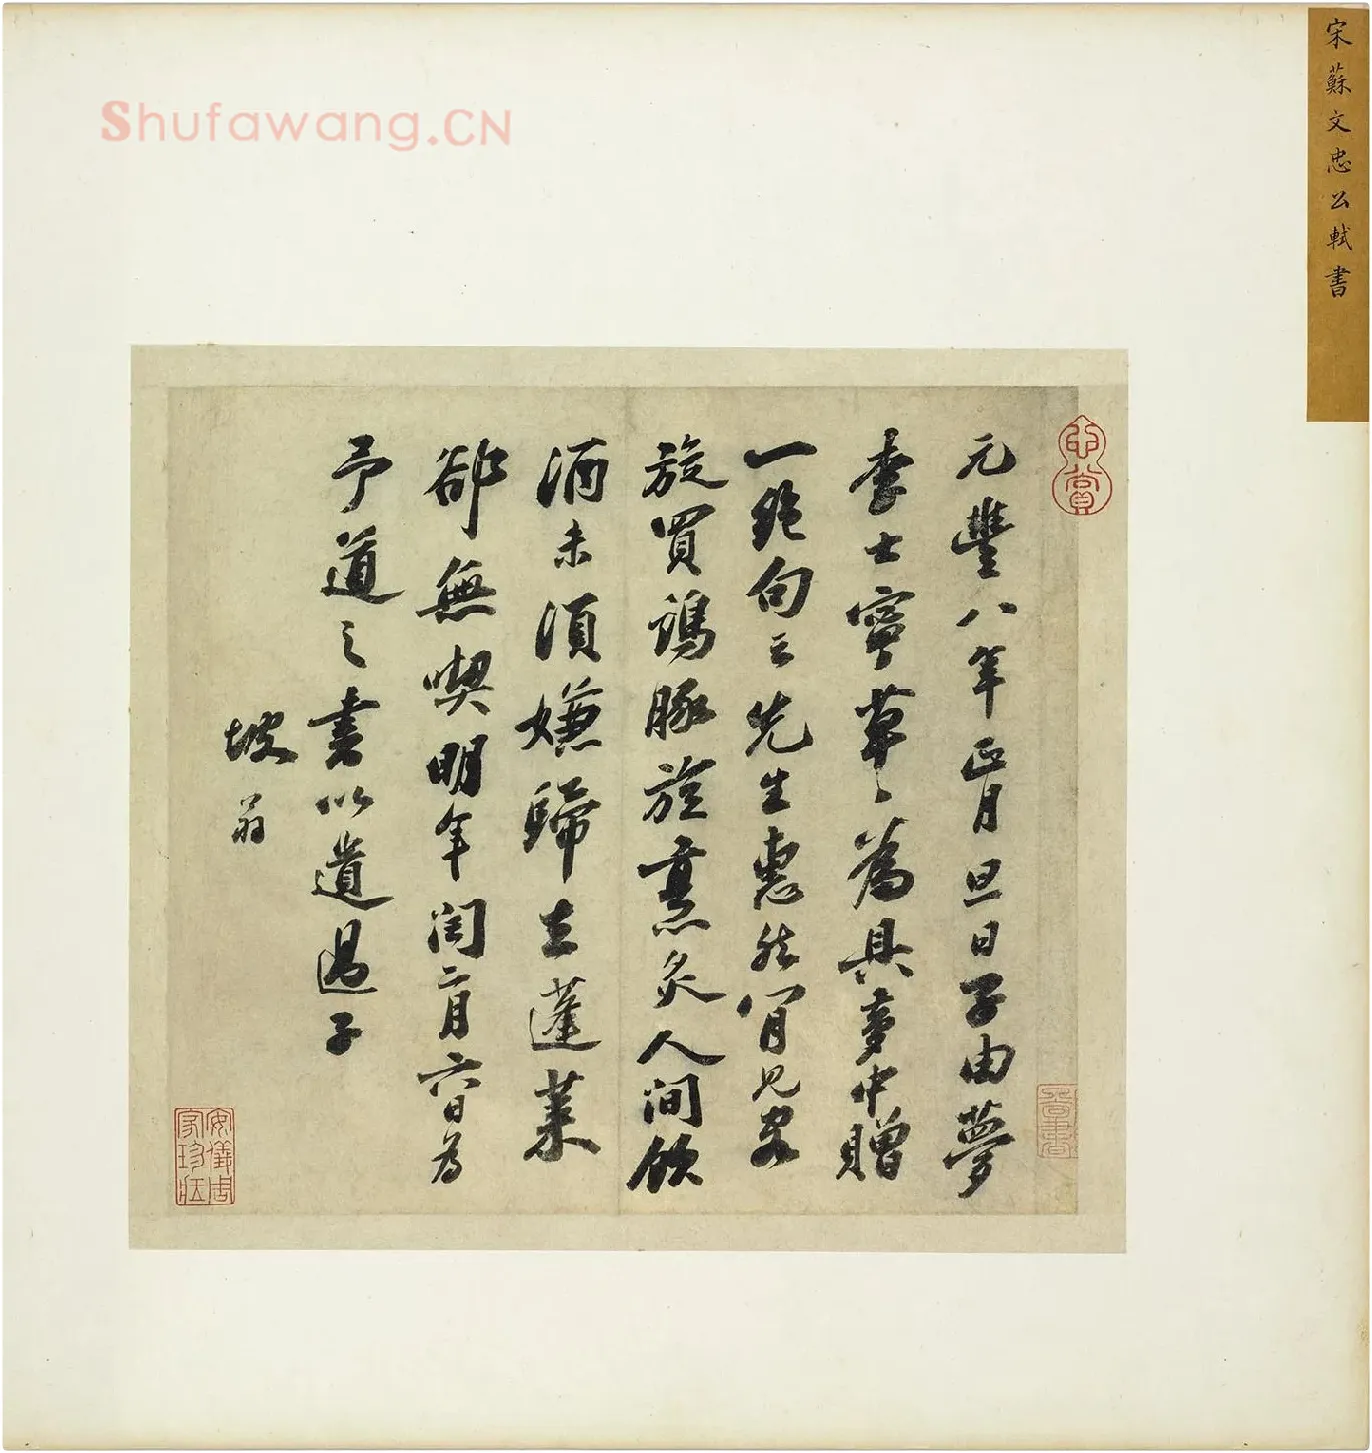 Shufawang.CN
宋蘇文忠公軾書
心賞
元豐八年正月旦日子由夢
李士寧草〻為具夢中贈
一絕句云先生惠然肯見客
旋買鷄豚旋烹炙人間飲
酒未須嫌歸去蓬萊
卻無喫明年閏二月六日為
予道之書以遺過子
坡翁
安儀周家珍藏